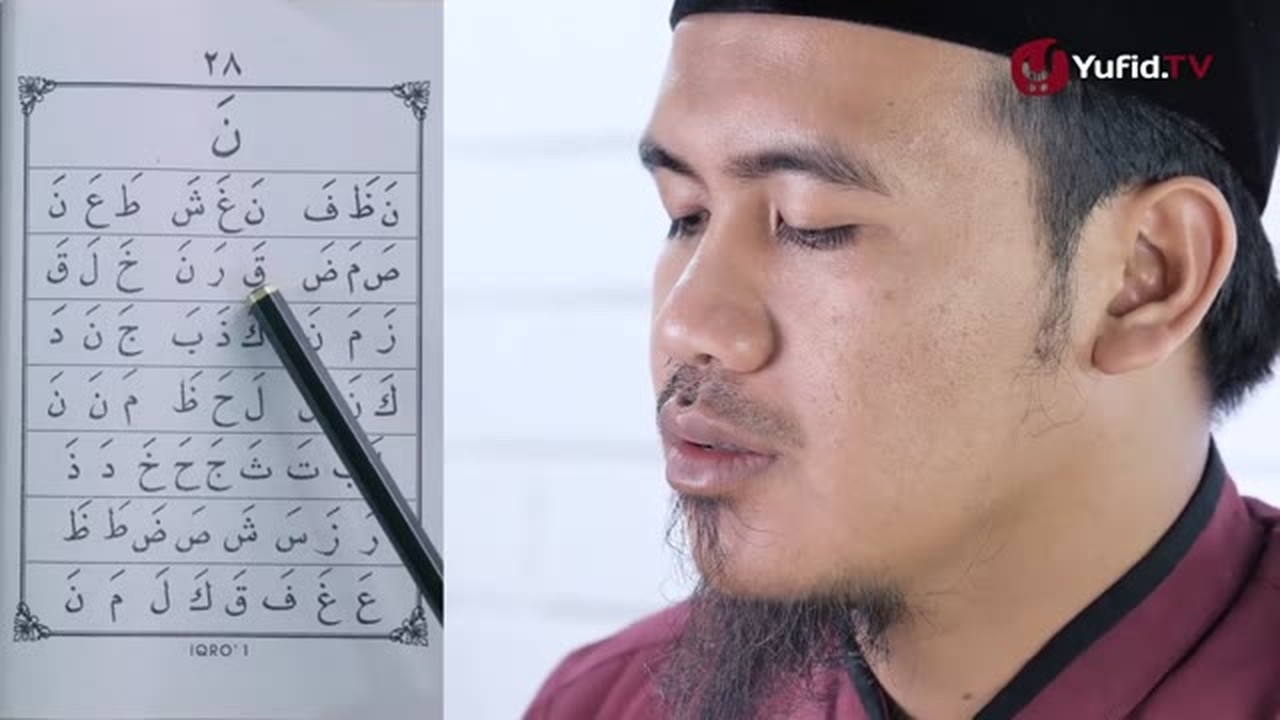 ٢٨
نَ
نَ ظَ فَ نَ غَ شَ طَ عَ نَ
صَ مَ ضَ قَ رَ نَ خَ لَ قَ
زَ مَ نَ كَ ذَ بَ جَ نَ دَ
كَ نَ لَ حَ ظَ مَ نَ نَ
تَ ثَ جَ حَ خَ دَ ذَ
رَ زَ سَ شَ صَ ضَ طَ ظَ
عَ غَ فَ قَ كَ لَ مَ نَ
IQRO' 1
Yufid.TV